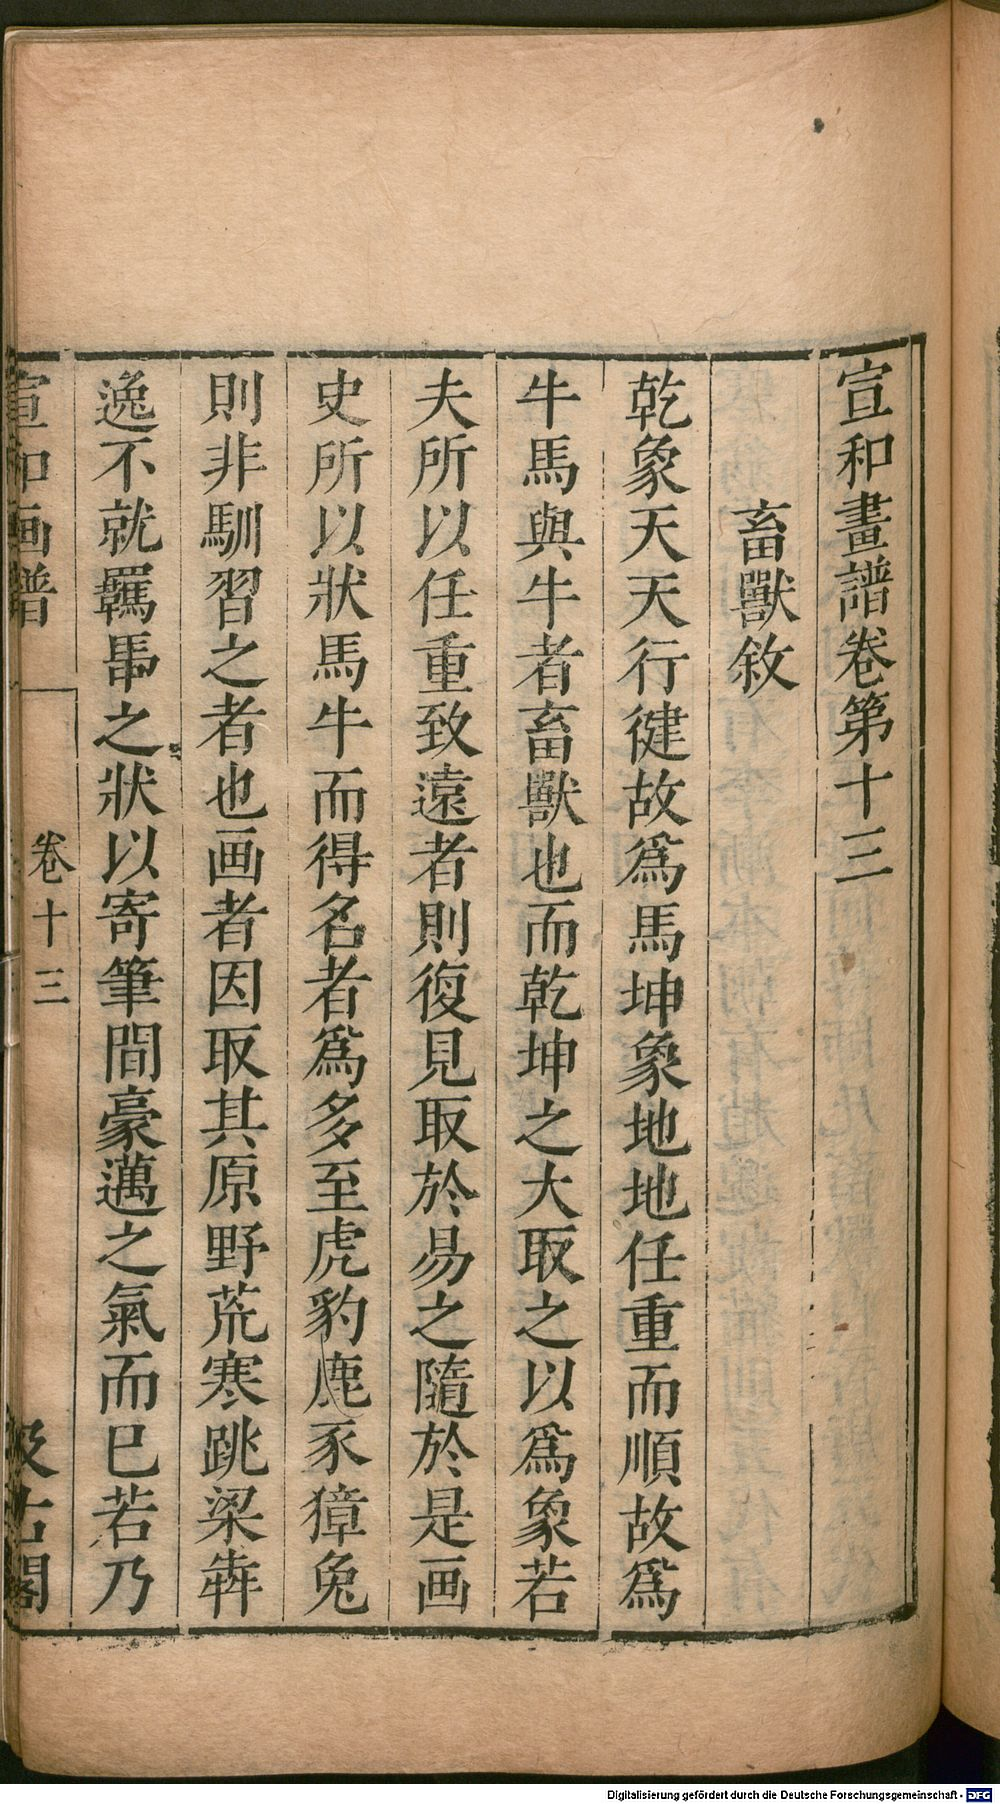 宣和畫譜卷第十三
畜獸敘
乾象天天行徤故爲馬坤象地地任重而順故爲
牛馬與牛者畜獸也而乾坤之大取之以爲象若
夫所以任重致遠者則復見取於易之隨於是画
史所以狀馬牛而得名者爲多至虎豹鹿豕獐兔
則非馴習之者也画者因取其原野荒寒跳梁犇
逸不就羈馽之狀以寄筆間豪邁之氣而已若乃
宣和画譜 卷十三 汲古閣
Digitalisierung gefördert durch die Deutsche Forschungsgemeinschaft - DFG